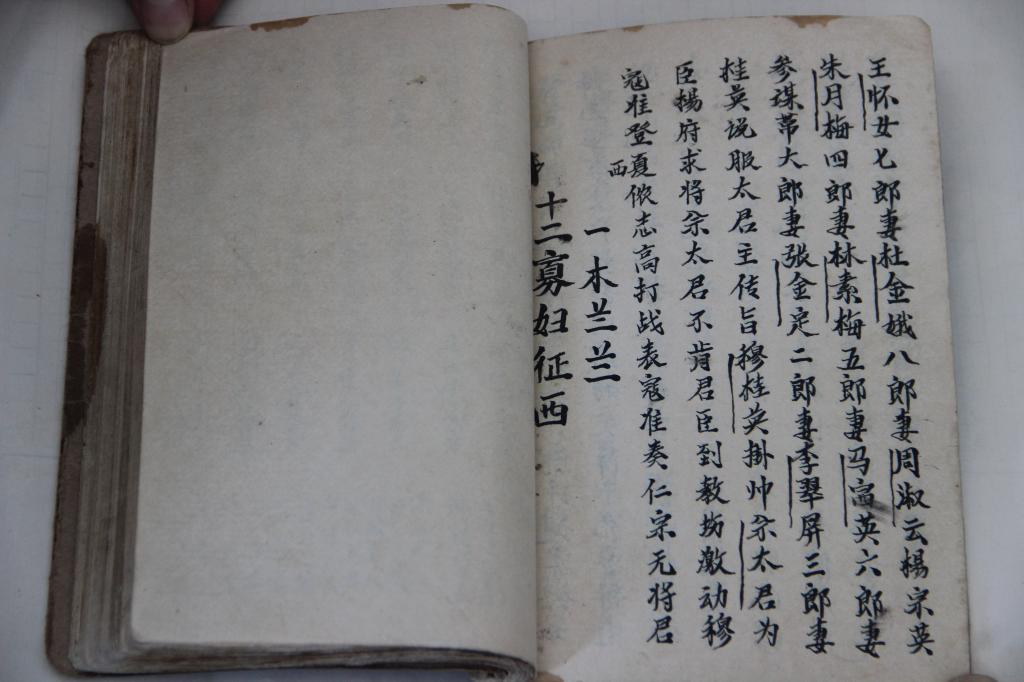 十二寡妇征西
一木兰兰
寇准登西夏侬志高打战表寇准奏仁宗无将君
臣楊府求将佘太君不肯君臣到教场激动穆
桂英说服太君主传旨穆桂英掛帅佘太君为
参谋带大郎妻張金定二郎妻李翠屏三郎妻
朱月梅四郎妻林素梅五郎妻马富英六郎妻
王怀女七郎妻杜金娥八郎妻周淑云楊宗英